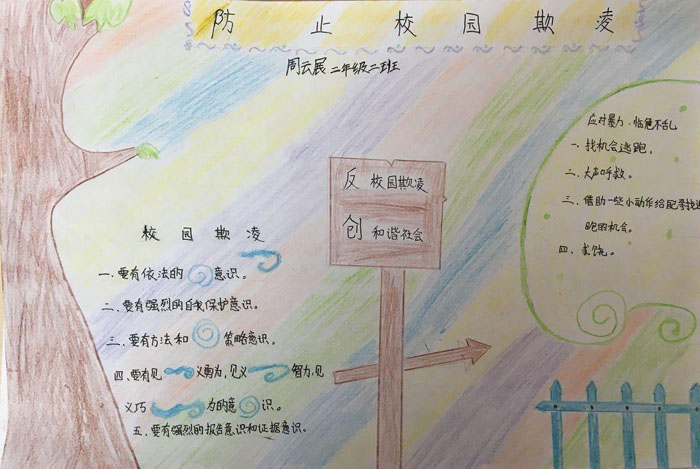 防止校园欺凌
周云展 二年级二班
反 校园欺凌
创 和谐社会
校园欺凌
一、要有依法的意识。
二、要有强烈的自我保护意识。
三、要有方法和策略意识。
四、要有见义勇为,见义智为,见
义巧为的意识。
五、要有强烈的报告意识和证据意识。
应对暴力,临危不乱
一、找机会逃跑。
二、大声呼救。
三、借助一些小动作给自己寻找逃
跑的机会。
四、求饶。